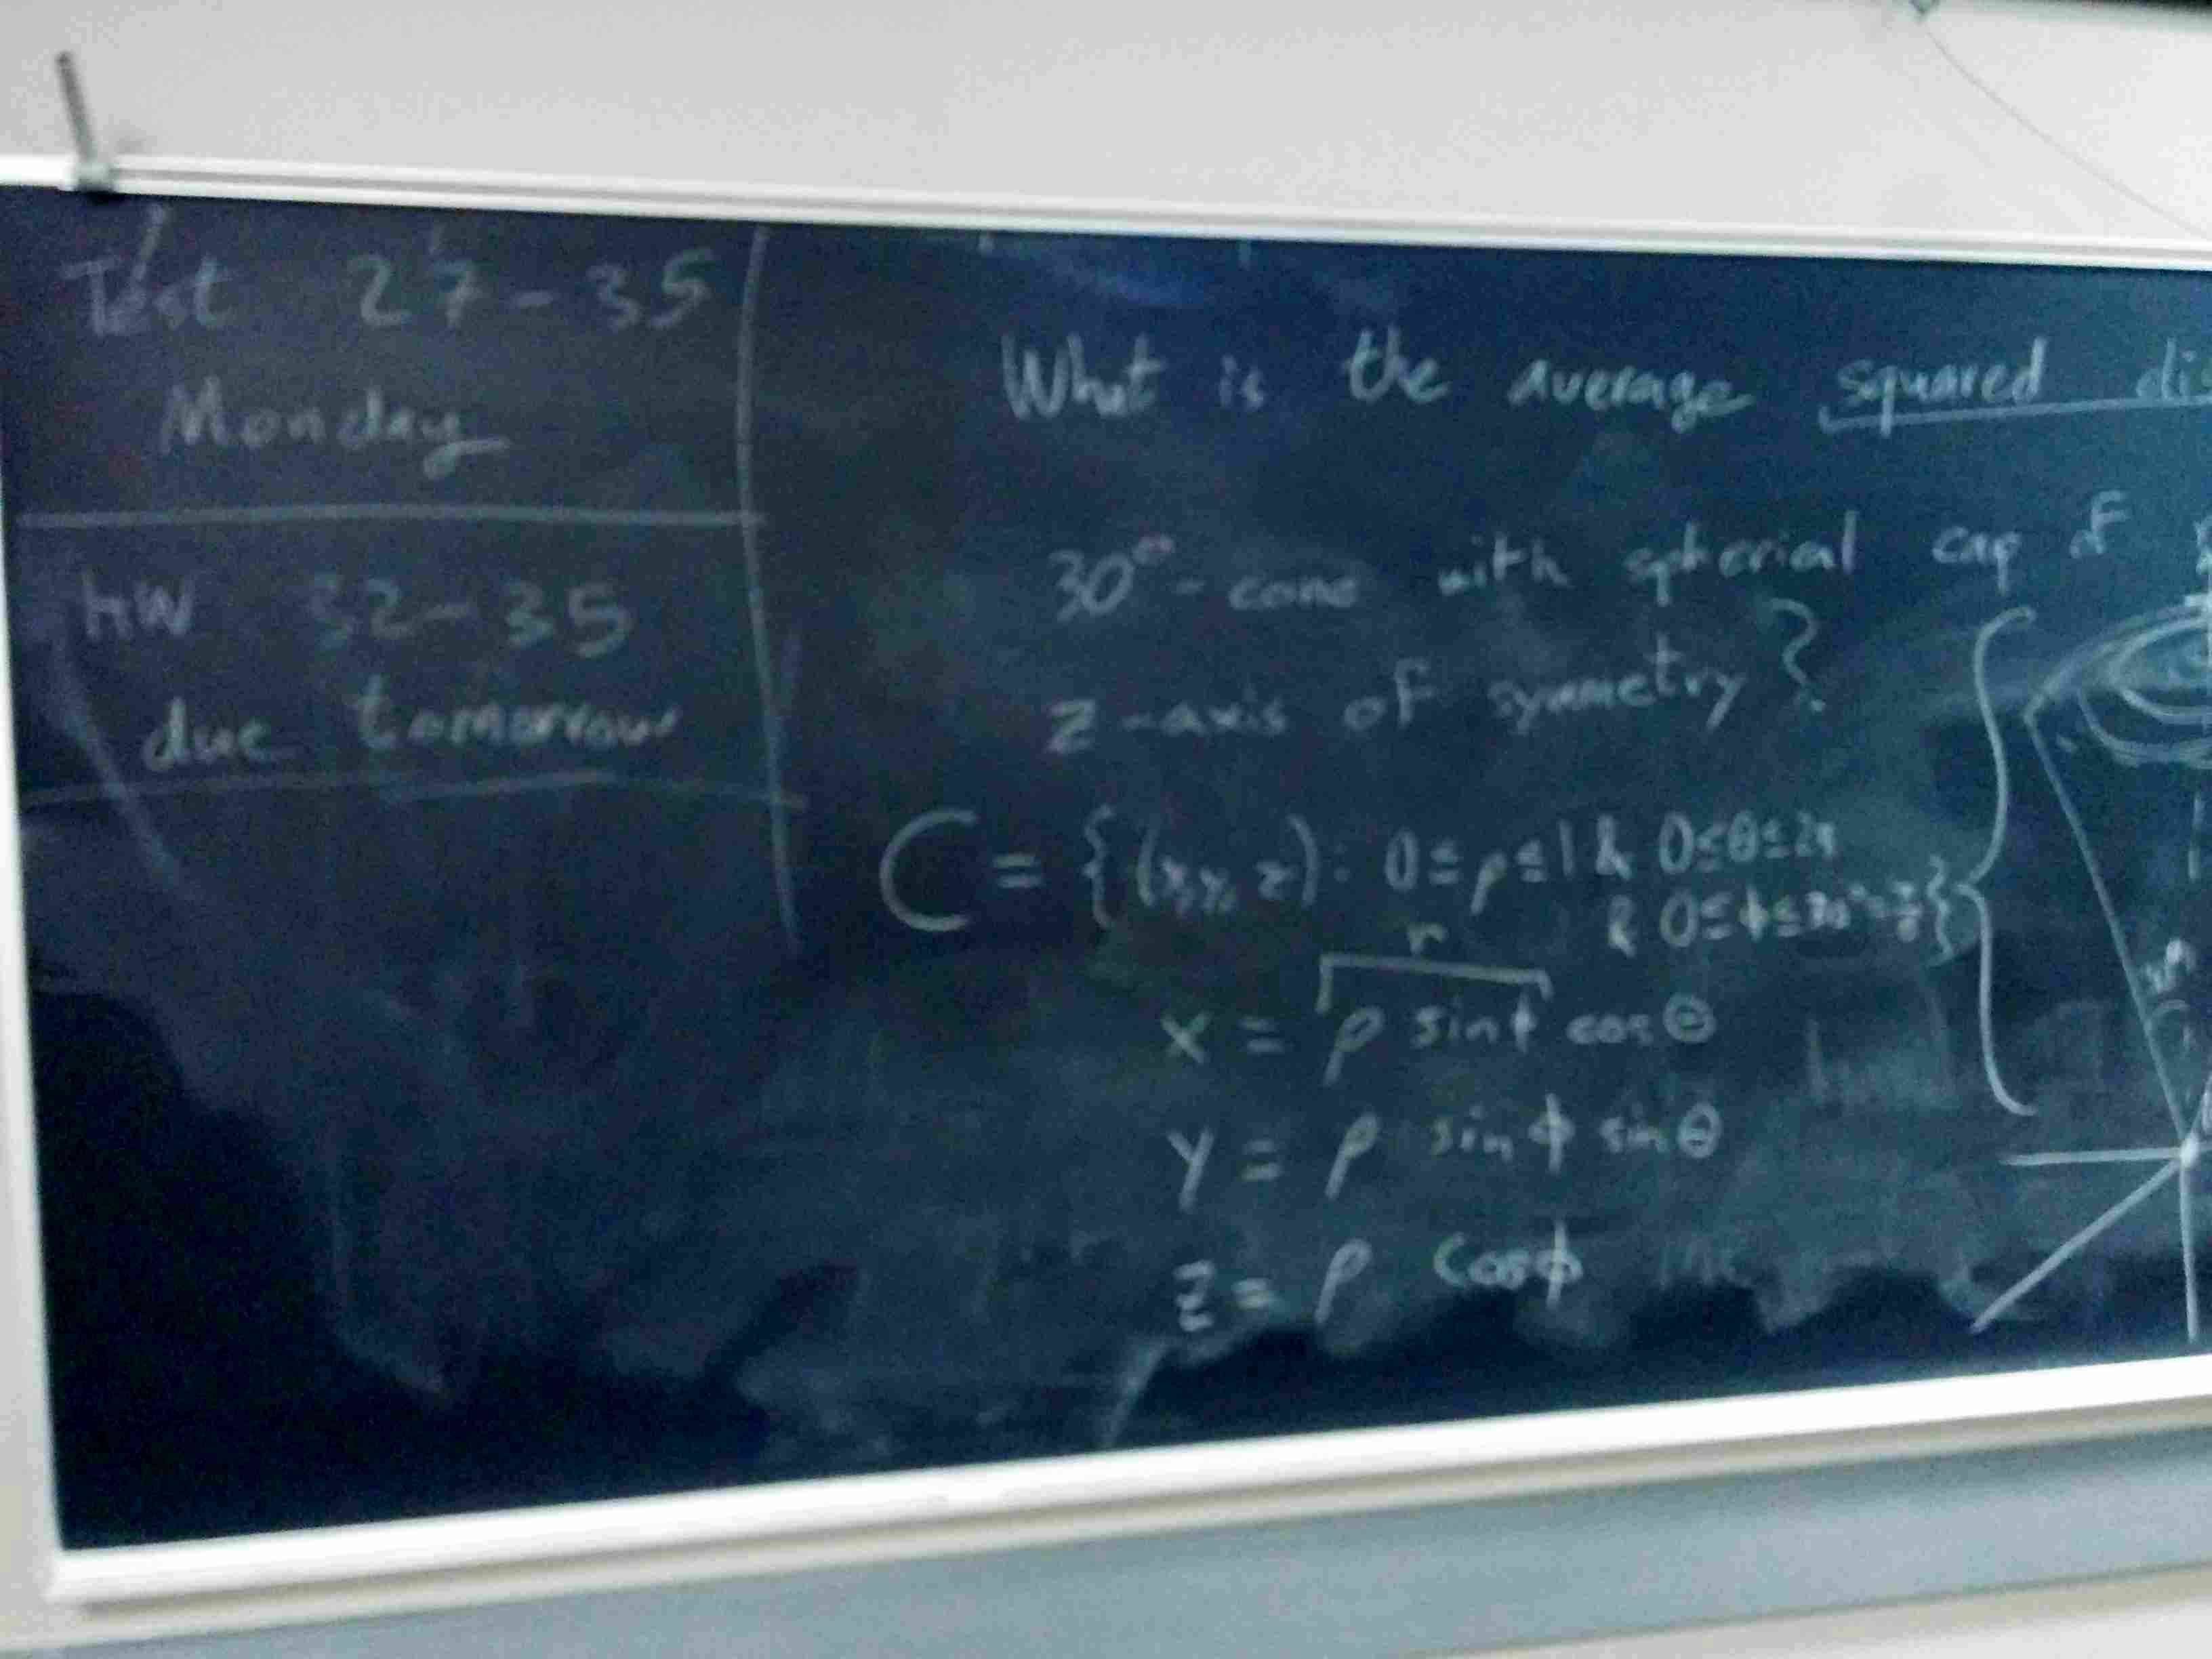 Test 27-35
Monday
HW 32-35
due tomorrow
What is the average squared dis
30° - cone with spherial cap of
z-axis of symmetry?
C = {(x,y,z): 0≤ρ≤1 & 0≤θ≤2π
& 0≤ϕ≤30°=π/6}
r
x = ρ sinϕ cosθ
y = ρ sinϕ sinθ
z = ρ cosϕ